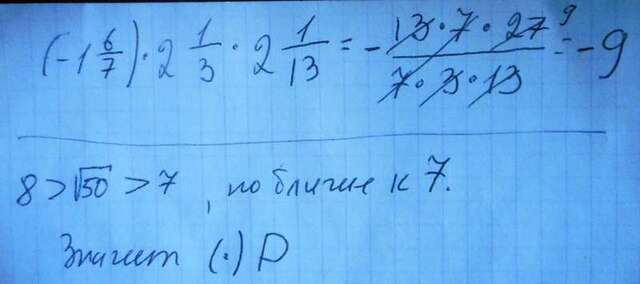 (-1 6/7) · 2 1/3 · 2 1/13 = - 13·7·27/7·3·13 9 = -9
8 > √50 > 7 , но ближе к 7.
Значит (·) D